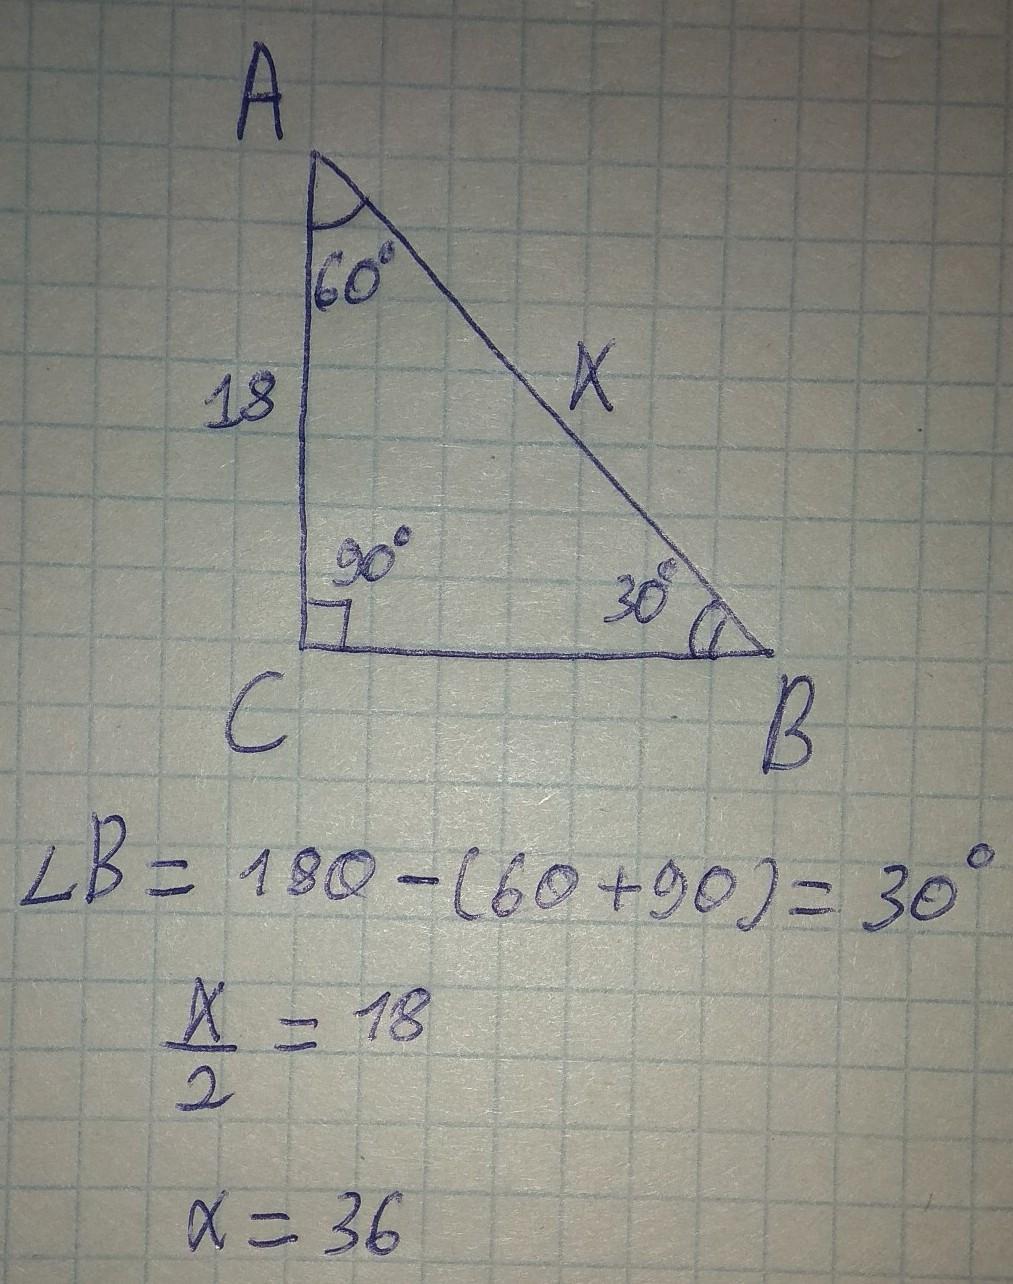 A
60°
18
X
90°
30°
C
B
∠B = 180 - (60 + 90) = 30°
x/2 = 18
x = 36